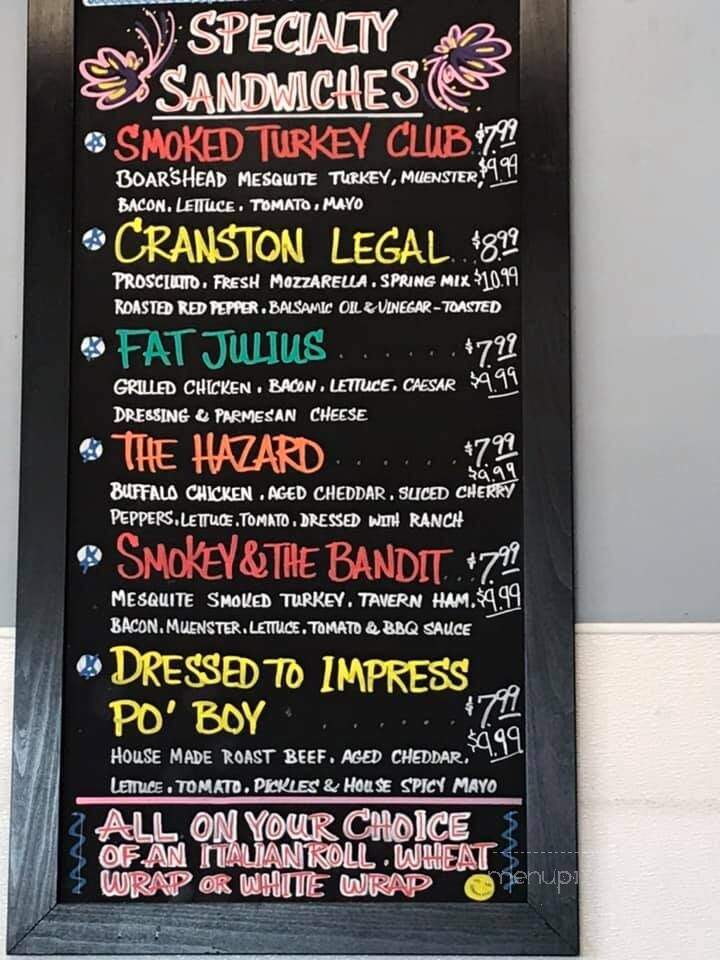 SPECIALTY
SANDWICHES
SMOKED TURKEY CLUB. $7.99
BOAR'S HEAD MESQUITE TURKEY, MUENSTER, $9.99
BACON. LETTUCE. TOMATO. MAYO
CRANSTON LEGAL... $8.99
PROSCIUTTO. FRESH MOZZARELLA. SPRING MIX $10.99
ROASTED RED PEPPER. BALSAMIC OIL & VINEGAR-TOASTED
FAT JULIUS...... $7.99
GRILLED CHICKEN. BACON. LETTUCE. CAESAR $9.99
DRESSING & PARMESAN CHEESE
THE HAZARD...... $7.99
$9.99
BUFFALO CHICKEN. AGED CHEDDAR. SLICED CHERRY
PEPPERS. LETTUCE. TOMATO. DRESSED WITH RANCH
SMOKEY & THE BANDIT... $7.99
MESQUITE SMOKED TURKEY. TAVERN HAM. $9.99
BACON. MUENSTER. LETTUCE. TOMATO & BBQ SAUCE
DRESSED TO IMPRESS
PO' BOY...... $7.99
$9.99
HOUSE MADE ROAST BEEF. AGED CHEDDAR.
LETTUCE. TOMATO. PICKLES & HOUSE SPICY MAYO
ALL ON YOUR CHOICE
OF AN ITALIAN ROLL. WHEAT
WRAP OR WHITE WRAP
menupi